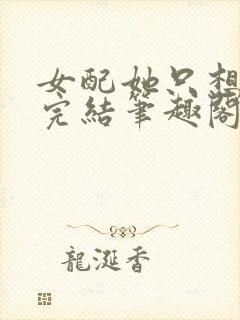 女配她只想
完結筆趣閣
龍涎香